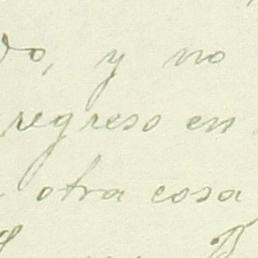 do, y no
regreso en
otra cosa